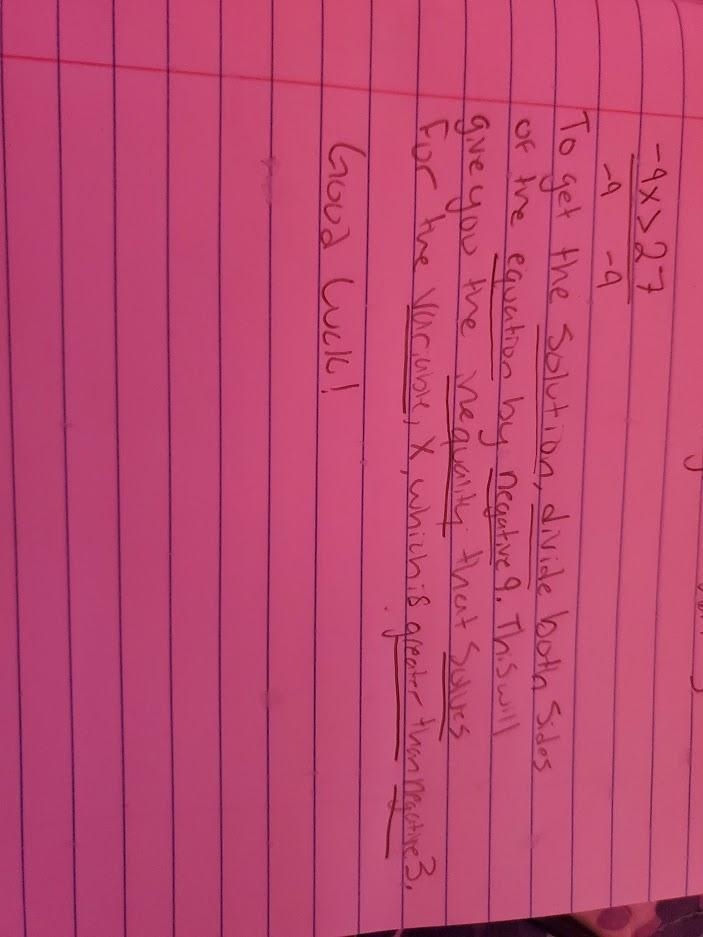 -9x > 27
-9 -9
To get the solution, divide both sides
of the equation by negative 9. This will
give you the inequality that solves
for the variable, x, which is greater than negative 3.
Good luck!